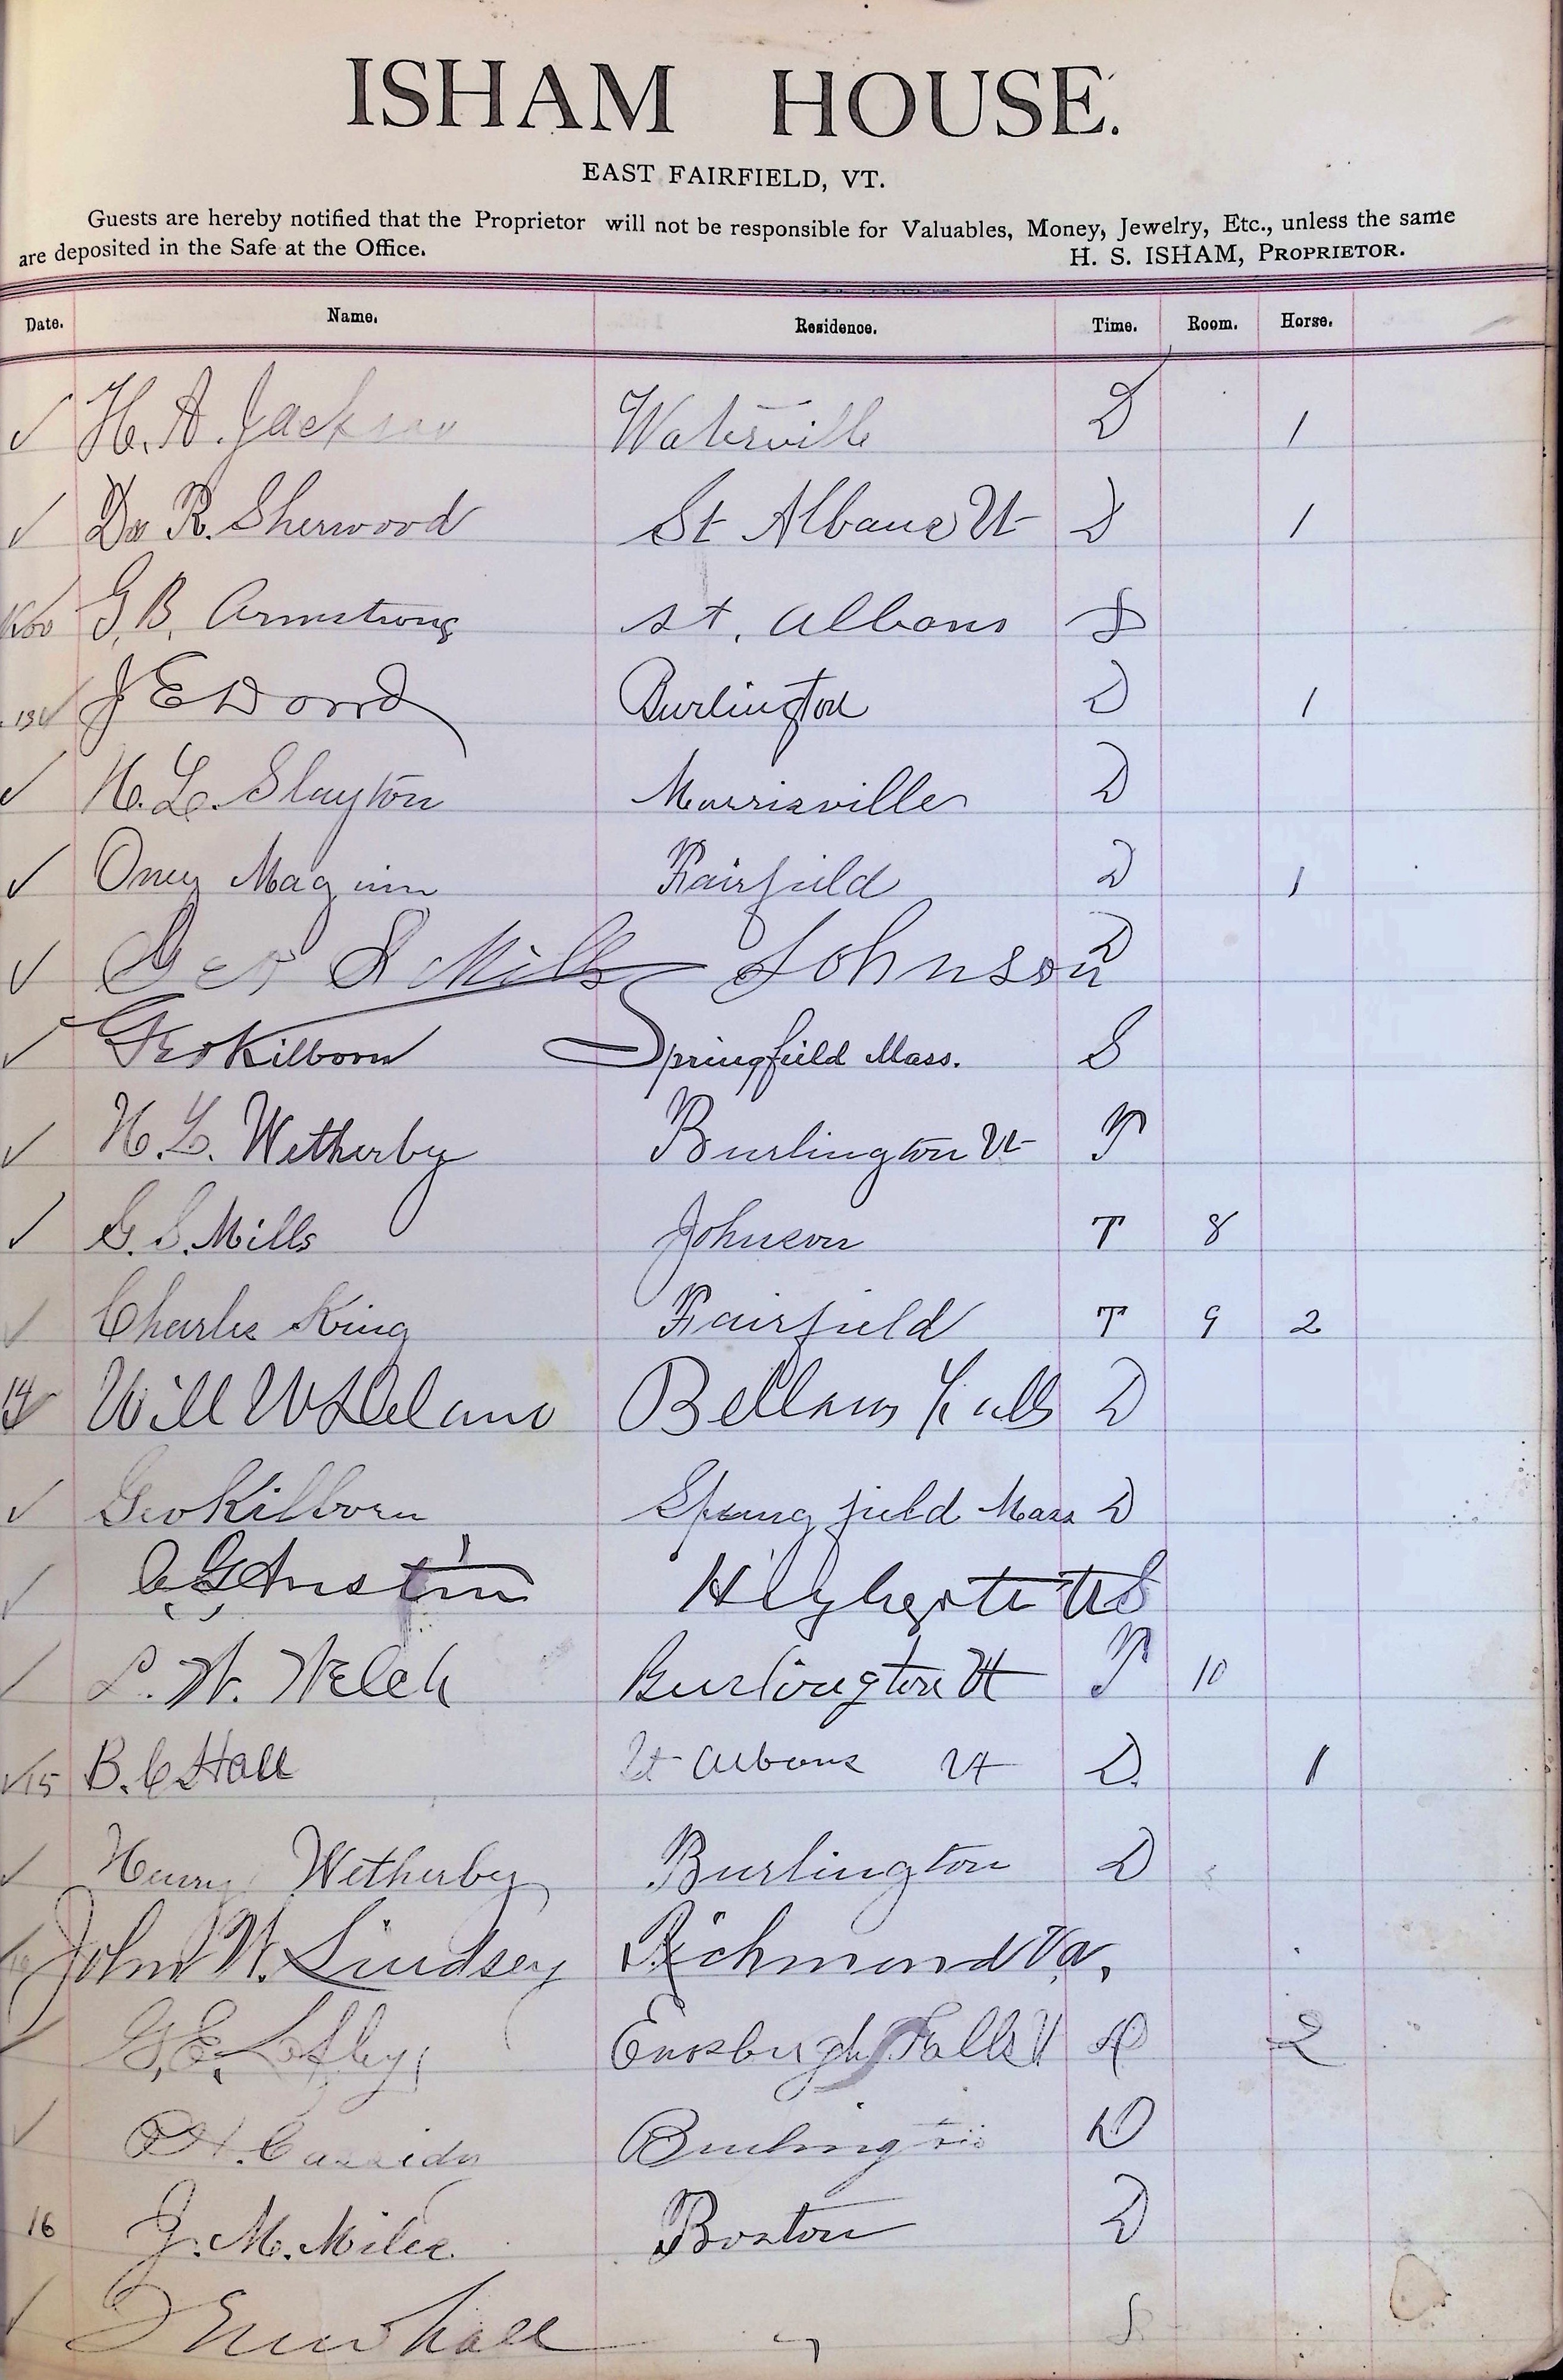 ISHAM HOUSE.
EAST FAIRFIELD, VT.
Guests are hereby notified that the Proprietor will not be responsible for Valuables, Money, Jewelry, Etc., unless the same
are deposited in the Safe at the Office. H. S. ISHAM, PROPRIETOR.
Date. Name. Residence. Time. Room. Horse.
✓ H. A. Jackson Waterville D 1
✓ Dr R. Sherwood St Albans Vt D 1
G. B. Armstrong St. Albans D
13 ✓ J E Dodd Burlington D 1
✓ H. L. Slayton Morrisville D
✓ Oney Maginn Fairfield D 1
✓ Geo S Mills Johnson D
✓ Geo Kilborn Springfield Mass. S
✓ H. L. Wetherby Burlington Vt T
✓ G. S. Mills Johnson T 8
✓ Charles King Fairfield T 9 2
14 ✓ Will W Delano Bellows Falls D
✓ Geo Kilborn Springfield Mass D
✓ C G Austin Highgate Vt S
✓ L. W. Welch Burlington Vt T 10
✓ 15 B. C Hall St Albans Vt D. 1
✓ Henry Wetherby Burlington D
John W. Lindsey Richmond Va,
✓ G. E. Enosburgh Falls V 2
✓ H. Cassidy Burlington D
16 J. M. Miles Boston D
✓ Newhall